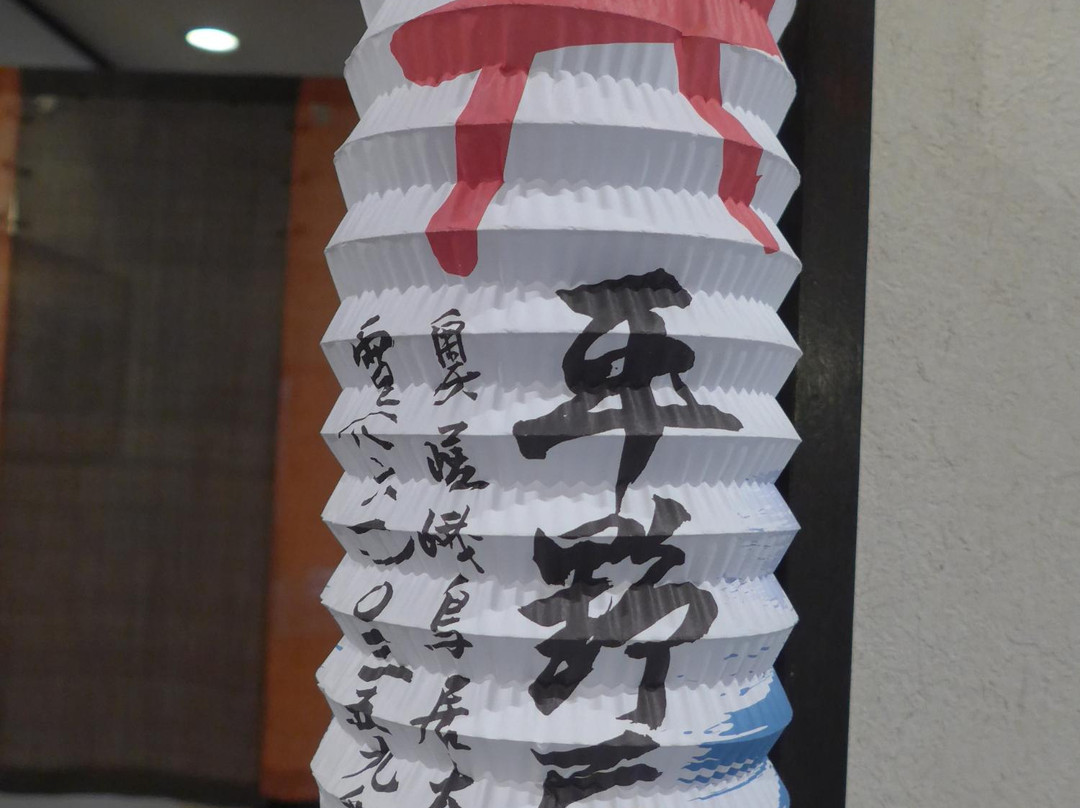 平野屋
奥嵯峨鳥居本
電八六一〇三五九